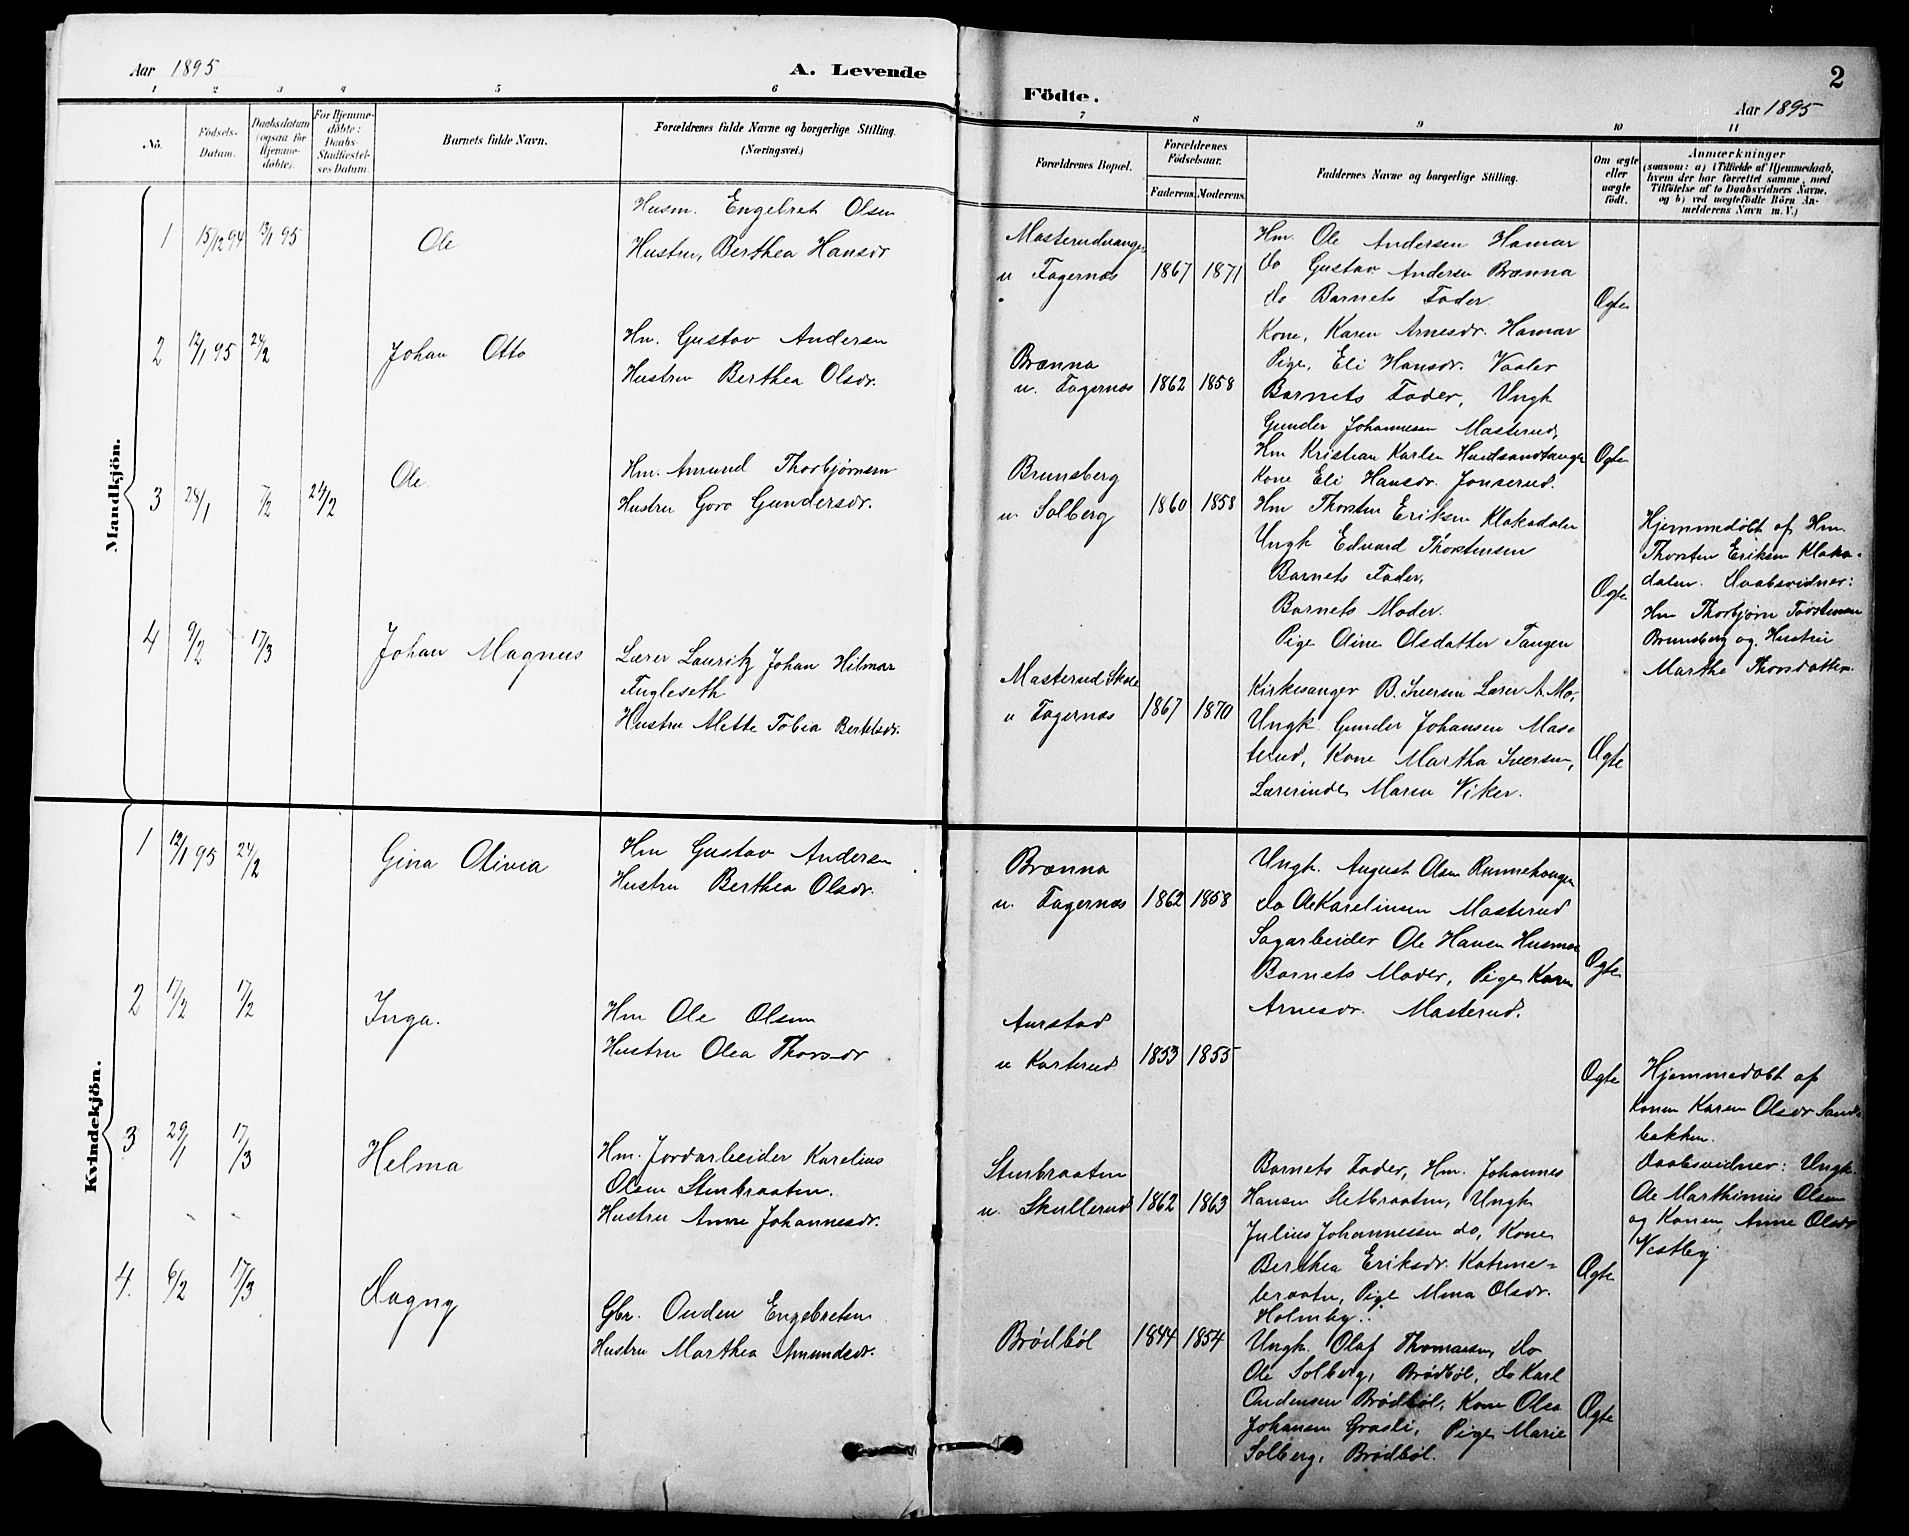 Aar 1895
A. Levende
1 2 3 4 5 6
No.
Födsels-
Datum.
Daabsdatum
(ogsaa for
Hjemme-
døbte).
For Hjemme-
døbte:
Daabs-
Stadfæstel-
ses Datum.
Barnets fulde Navn.
Forældrenes fulde Navne og borgerlige Stilling.
(Næringsvei.)
Mandkjön.
1 15/12 94 13/1 95 Ole
Husm. Engebret Olsen
Hustru, Berthea Hansdr
2 12/1 95 24/2 Johan Otto
Hm. Gustav Andersen
Hustru Berthea Olsdr.
3 28/1 7/2 24/2 Ole
Hm. Amund Thorbjørnsen
Hustru Goro Gundersdr.
4 9/2 17/3 Johan Magnus
Lærer Lauritz Johan Hilmar
Fugleseth
Hustru Alette Tobia Bertelsdr.
Kvindekjön.
1 12/1 95 24/2 Gina Olivia
Hm Gustav Andersen
Hustru Berthea Olsdr.
2 17/2 17/2 Inga.
Hm Ole Olsen
Hustru Olea Thorsdr
3 29/1 17/3 Helma
Hm. Jordarbeider Karelius
Olsen Stenbraaten.
Hustru Anne Johannesdr.
4. 6/2 17/3 Dagny
Gbr. Ouden Engebretsen
Hustru Marthea Amundsdr.
2
Födte.
Aar 1895
7 8 9 10 11
Forældrenes Bopæl.
Forældrenes
Födselsaar.
Faderens. Moderens.
Faddernes Navne og borgerlige Stilling.
Om ægte
eller
uægte
födt.
Anmærkninger
(saasom: a) i Tilfælde af Hjemmedaab,
hvem der har forrettet samme, med
Tilföielse af to Daabsvidners Navne.
og b) ved uægtefödte Börn An-
melderens Navn m. V.)
Masterudvangen
u Fagernæs 1867 1871
Hm. Ole Andersen Hamar
do Gustav Andersen Brænna
do Barnets Fader.
Kone, Karen Arnesdr. Hamar
Pige, Eli Hansdr. Vaaler
Ægte
Brænna
u. Fagernæs 1862 1858
Barnets Fader, Ungk
Gunder Johannesen Masterud,
Hm Kristian Karlsen
Kone Eli Hansdr. Jonserud.
Ægte
Brunsberg
u. Solberg 1860 1858
Hm Thorsten Eriksen Klakadalen
Ungk Edvard Thorstensen
Barnets Fader,
Barnets Moder.
Pige Oline Olsdatter Tangen
Ægte
Hjemmedöbt af Hm.
Thorsten Eriksen Klaka-
dalen. Daabsvidner:
Hm Thorbjørn Torstensen
Brunsberg og Hustru
Marthe Thorsdatter.
Masterud Skole
u Fagernæs 1867 1870
Kirkesanger B. Iversen Lærer A. Mo,
Ungk Gunder Johansen Mas-
terud, Kone Martha Iversen,
Lærerinde Maren Viker.
Ægte
Brænna
u. Fagernæs 1862 1858
Ungk. August Olsen Runnehaugen
do Ole Karelinsen Masterud
Sagarbeider Ole Hansen Husmoe
Barnets Moder, Pige Karen
Arnesdr. Masterud.
Ægte
Aurstad
u Kasterud 1853 1855
Ægte
Hjemmedöbt af
Konen Karen Olsdr Sand-
bakken.
Daabsvidner: Ungk
Ole Marthinius Olsen
og Konen, Anne Olsdr
Vestby.
Stenbraaten
u. Skullerud 1862 1863
Barnets Fader, Hm. Johannes
Hansen Sletbraaten, Ungk
Julius Johannessen do, Kone
Berthea Eriksdr.
braaten, Pige Mina Olsdr.
Holmby.
Ægte
Brödböl 1844 1854
Ungk. Olaf Thomasen, do
Ole Solberg, Brödböl, do Karl
Oudensen Brödböl, Kone Olea
Johansen Grasli, Pige Marie
Solberg, Brödböl.
Ægte